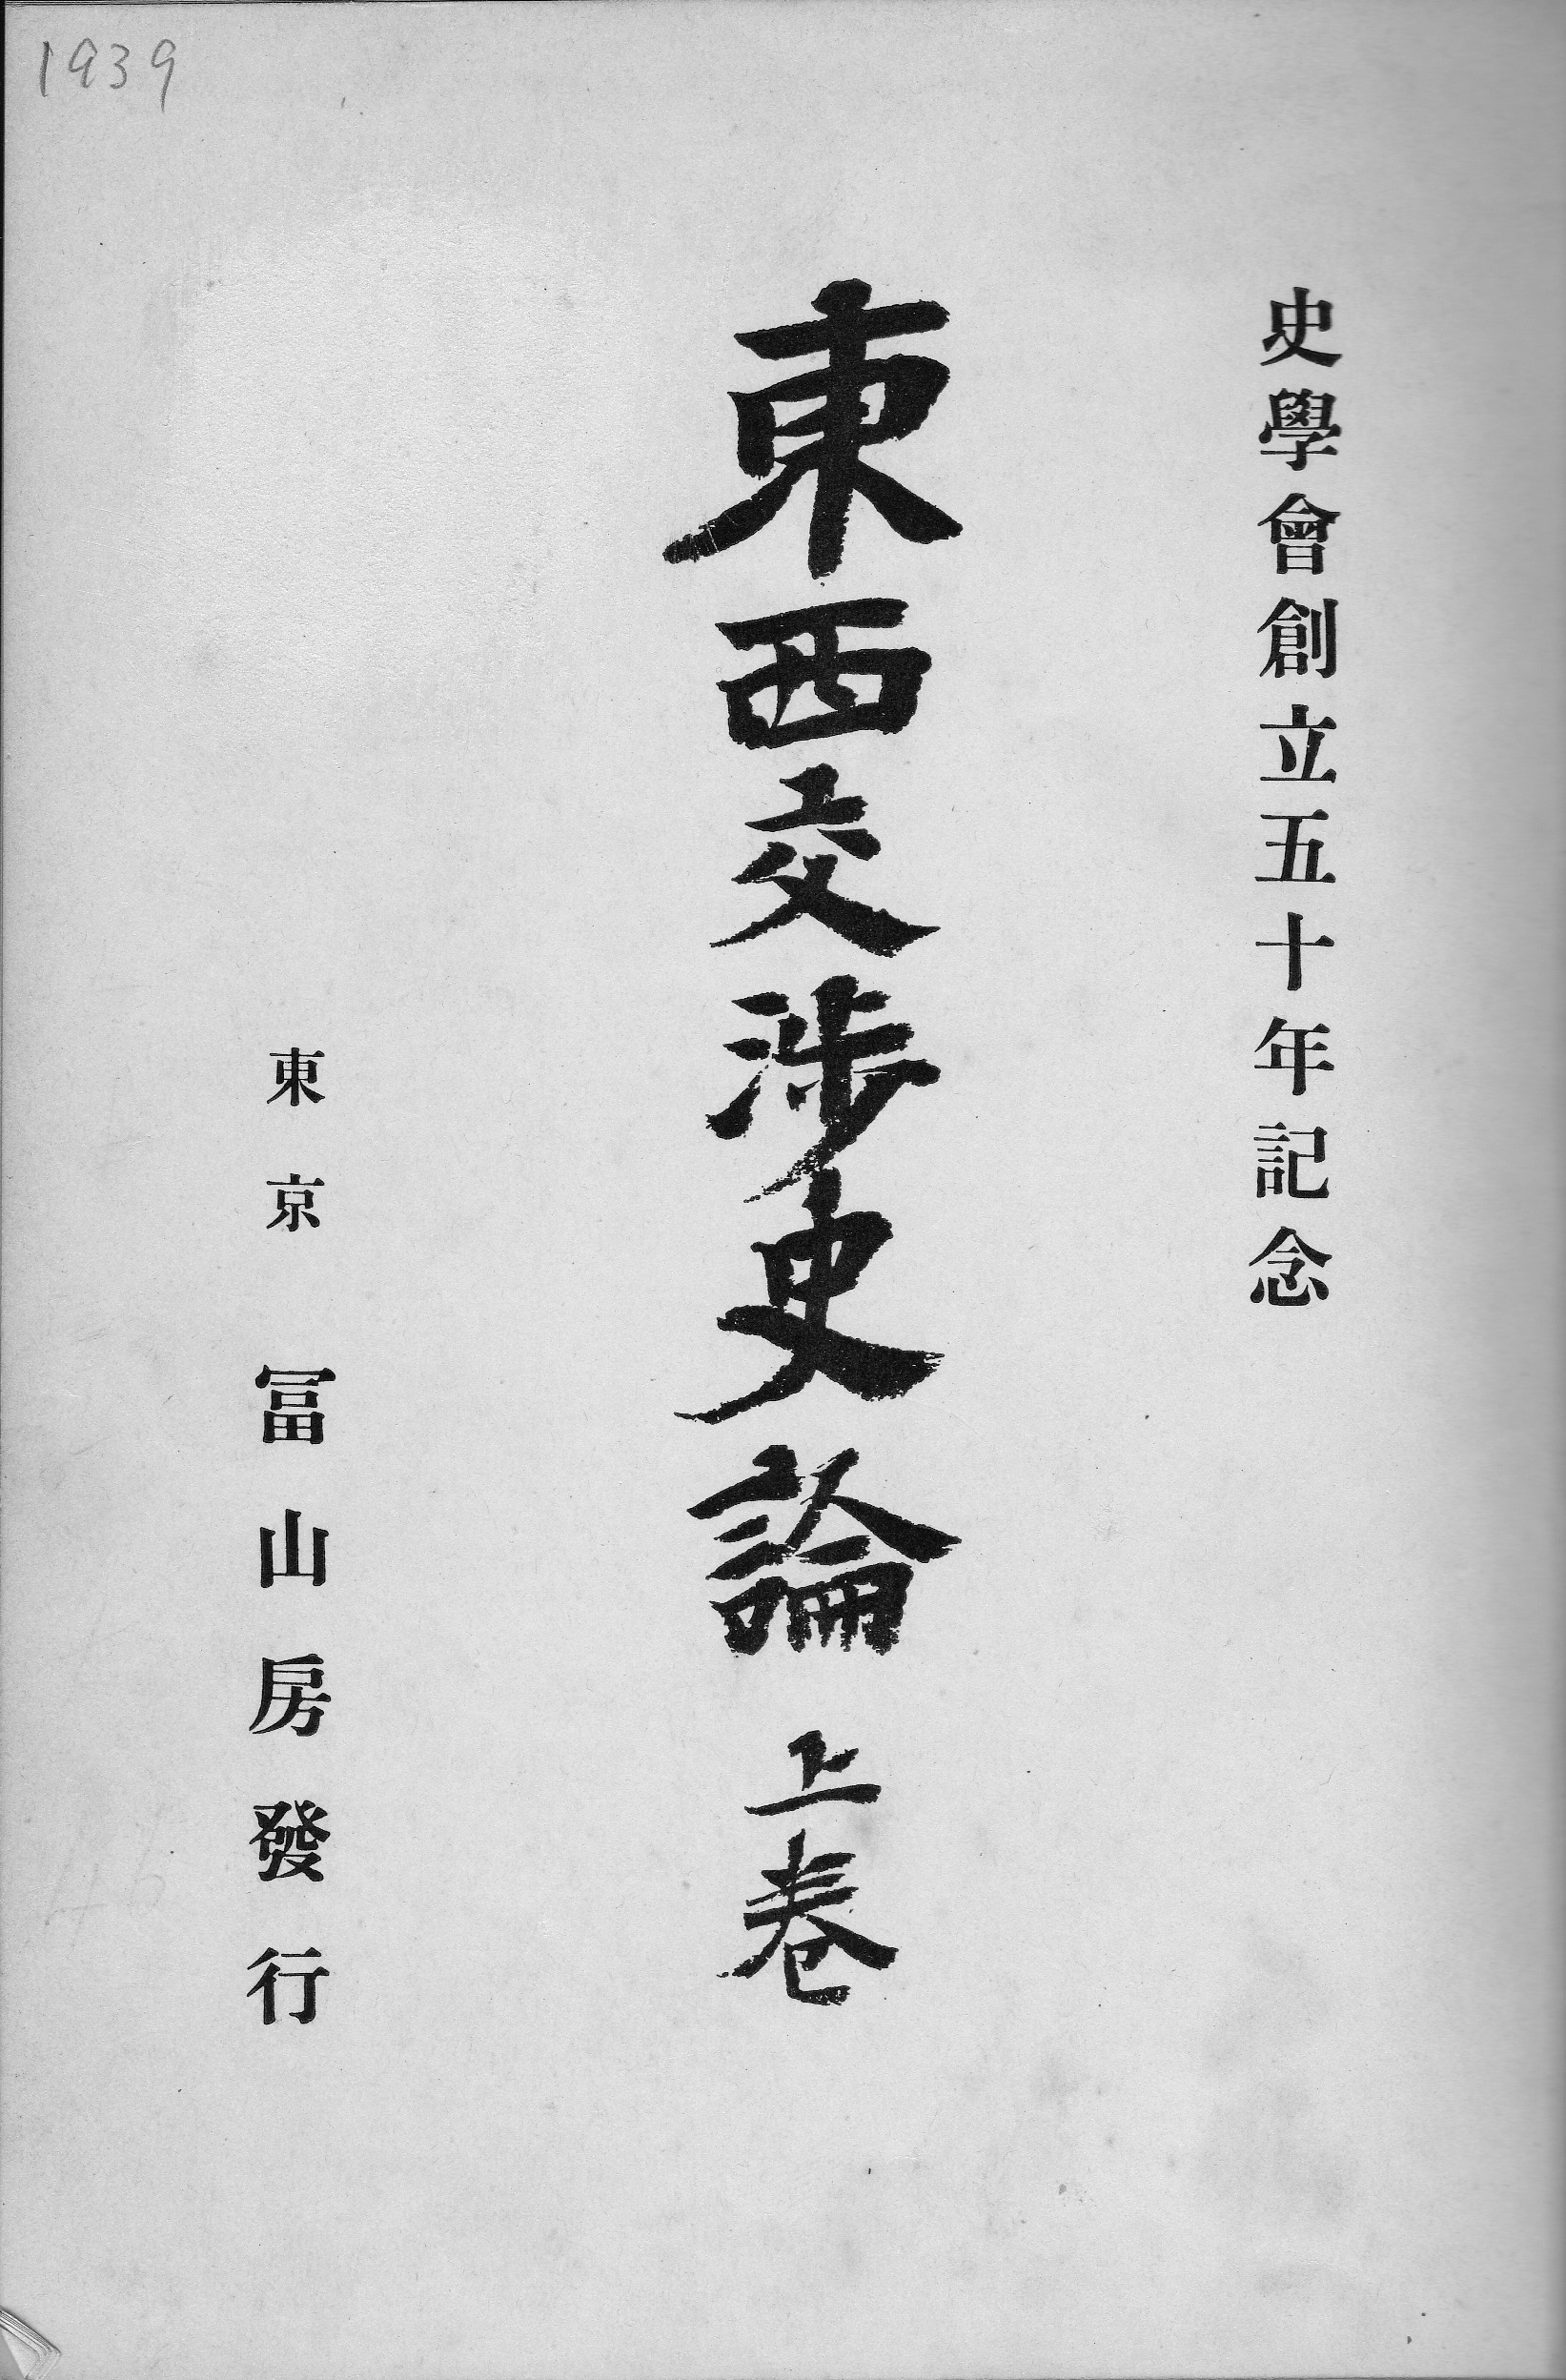 1939
史學會創立五十年記念
東西交涉史論 上卷
東京 冨山房發行